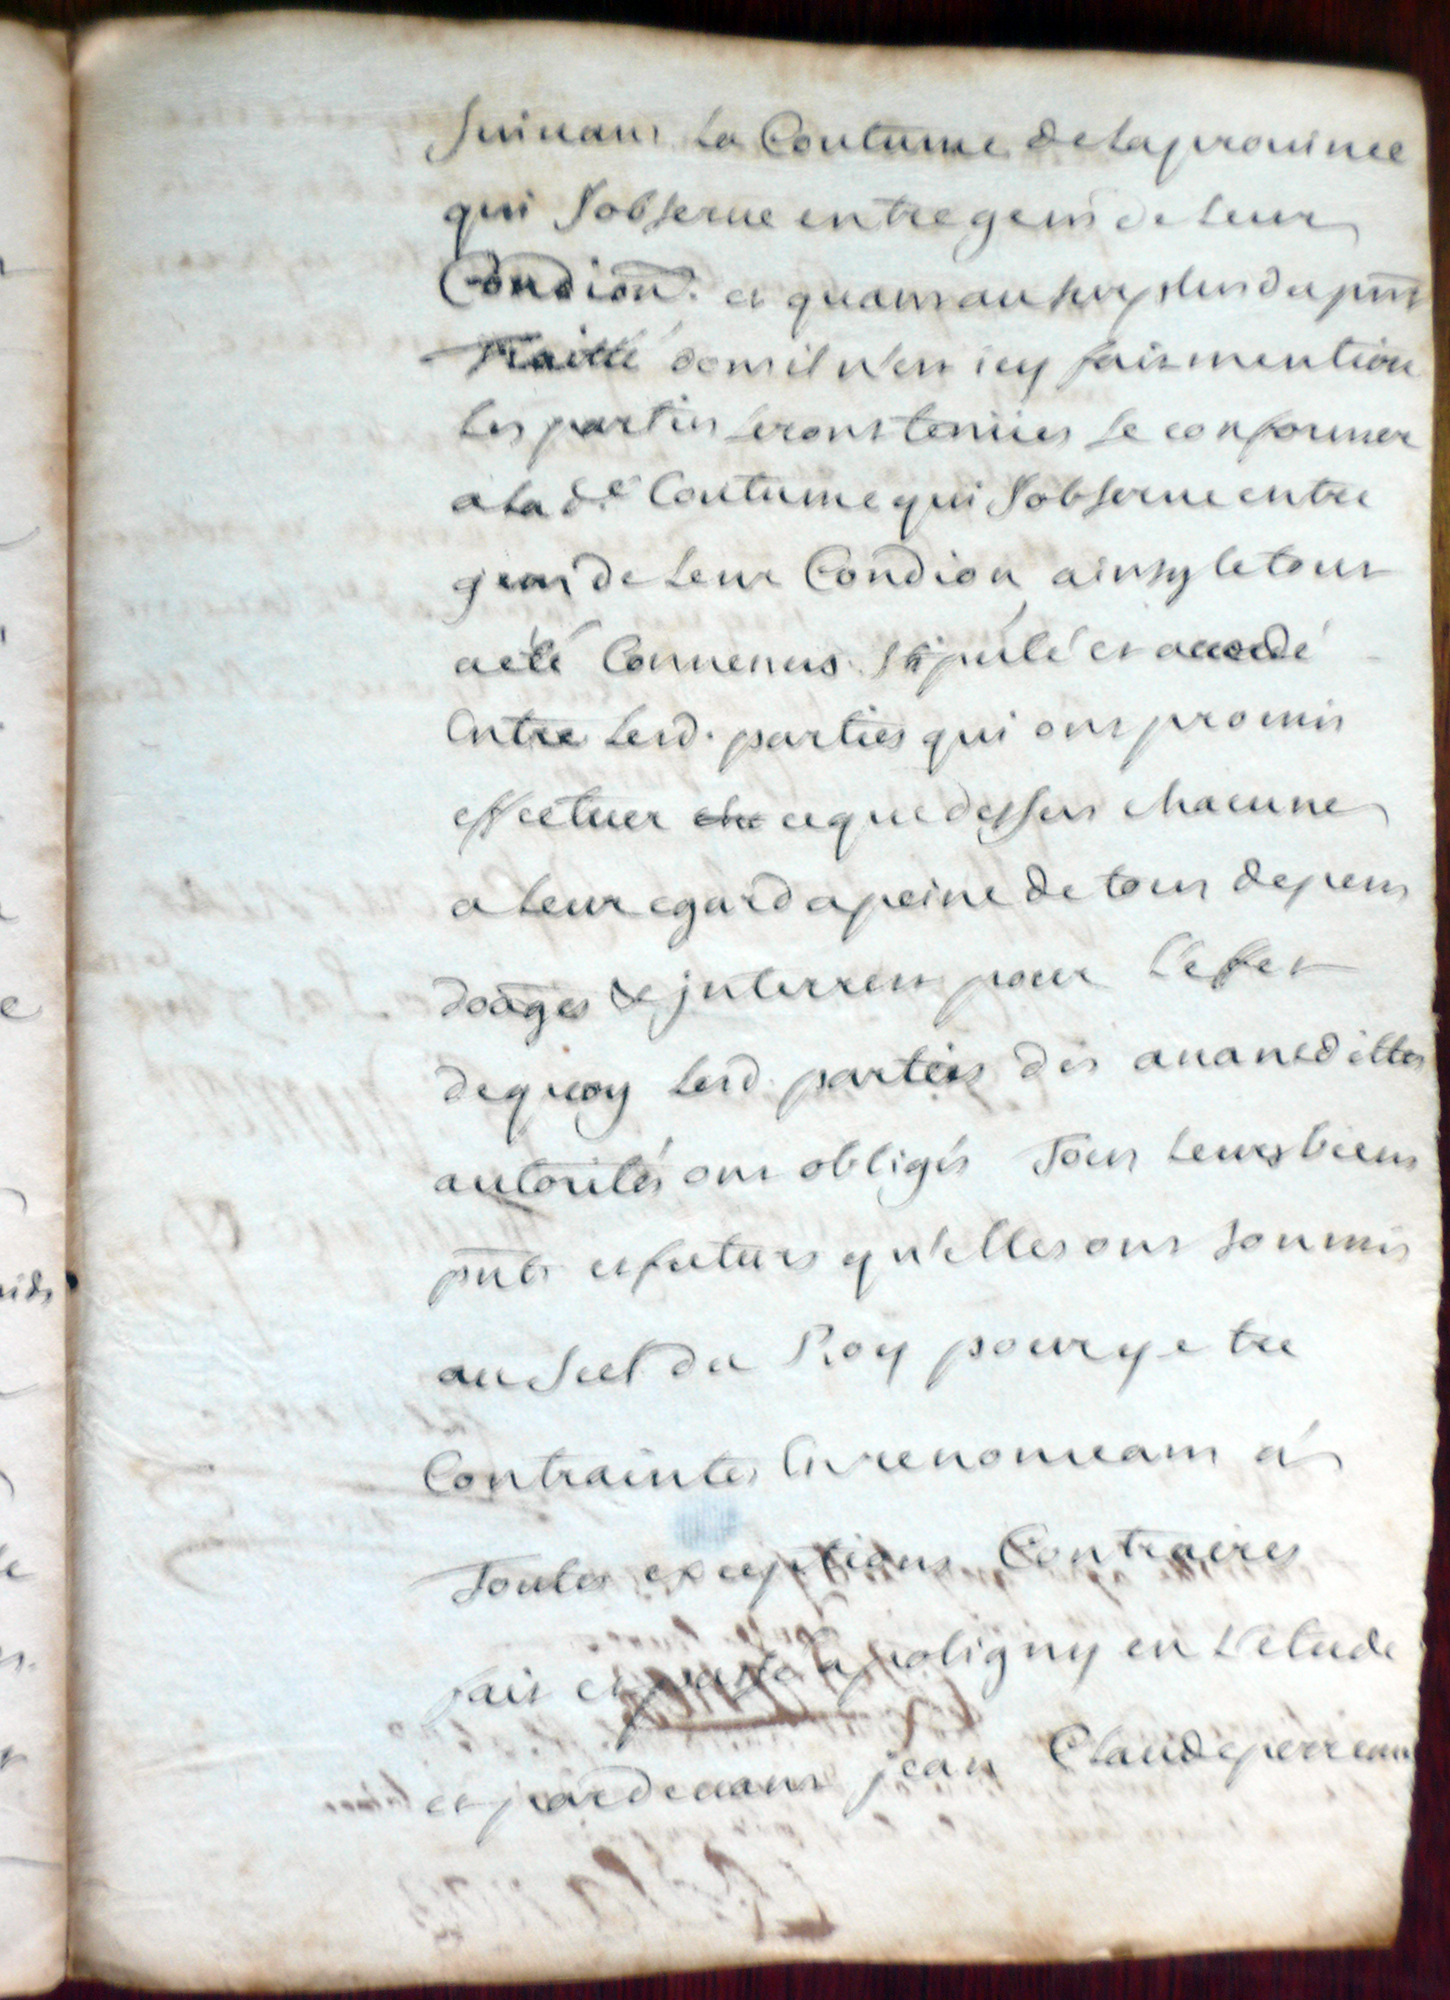 suivant la Coutume de la province
qui s'observe entre gens de leur
Condion. et quant au surplus du pnt
Traitté dont il n'est icy fait mention
les parties seront tenües se conformer
a la de. Coutume qui s'observe entre
gens de leur Condion ainsy le tout
a été Convenus stipulé et accordé
Entre lesd. parties qui ont promis
effectuer ce que dessus chacune
a leur egard a peine de tous depens
doages & jnterrest pour l'effet
de quoy lesd. parties des avant dittes
autorités ont obligés Tous leurs biens
pnts et futurs qu'elles ont soumis
au scel du Roy pour y etre
Contraintes En renonceant a
Toutes exceptions Contraires
fait et passé a poligny en l'etude
et pardevant jean Claude perreau